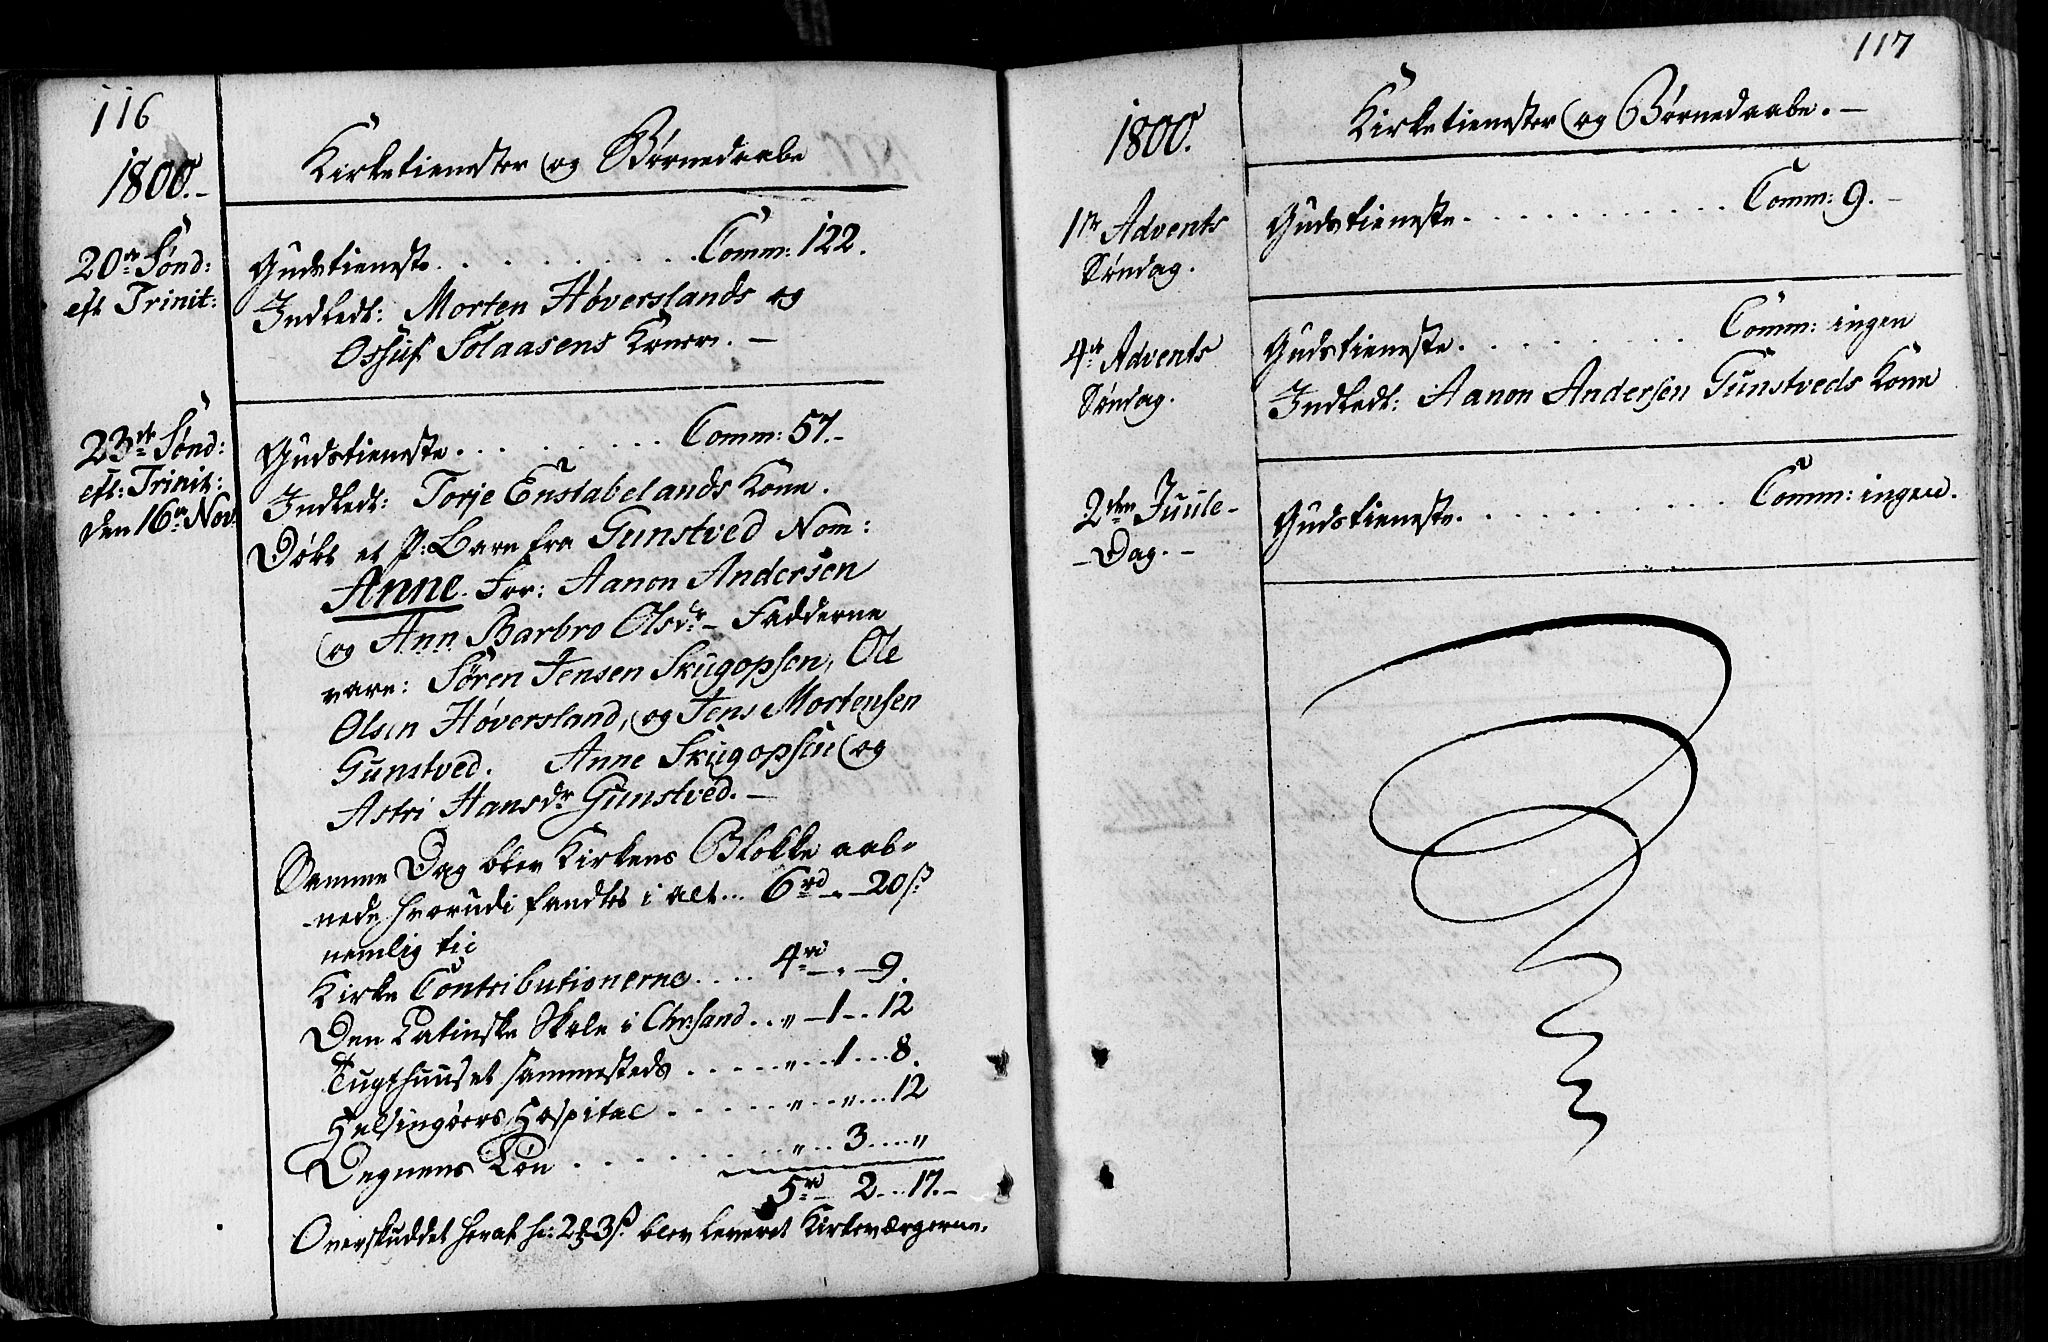 116
1800.-
Kirketienester og Børnedaabe
20de Sønd:
eft Trinit:
Gudstieneste. . . . . . . . . . Comm: 122.
Indledt: Morten Høverslands og
Ossuf Solaasens Koner. -
23de Sønd:
eft: Trinit:
den 16de Nov:
Gudstieneste. . . . . . . . . Comm: 57.-
Indledt: Torje Enstabelands Kone.
Døbt et P: Barn fra Gunstved Nom:
Anne. For: Aanon Andersen
og Ann Barbro Olsdr - Fadderne
vare: Søren Jensen Skugopsen, Ole
Olsen Høversland, og Jens Mortensen
Gunstved. Anne Skugopsen og
Astri Hansdr Gunstved. -
Samme Dag blev Kirkens Blokke aab-
-nede, hvorudi fandtes i alt... 6rd - 20 ß
nemlig til
Kirke Contributionerne.... 4rd - . - 9.
Den Latinske Skole i Chrsand. . „ - 1 - . 12
Tugthuuset sammesteds . . . . . „ ... 1 ... 8.
Helsingøers Hospital . . . . . . „ ... „ ... 12
Degnens Løn . . . . . . . . . „ ... 3 .... „
5rd - 2 ... 17. -
Overskuddet heraf h: 2 & 3 ß blev leveret Kirkeværgerne.
117
1800.
Kirketienester og Børnedaabe. -
1ste Advents
Søndag.
Gudstieneste. . . . . . . . . . . . Comm: 9. -
4de Advents
Søndag.
Gudstieneste. . . . . . . . . Comm: ingen
Indledt: Aanon Andersen Gunstveds Kone
2den Juule-
- Dag. -
Gudstieneste. . . . . . . . . . Comm: ingen.